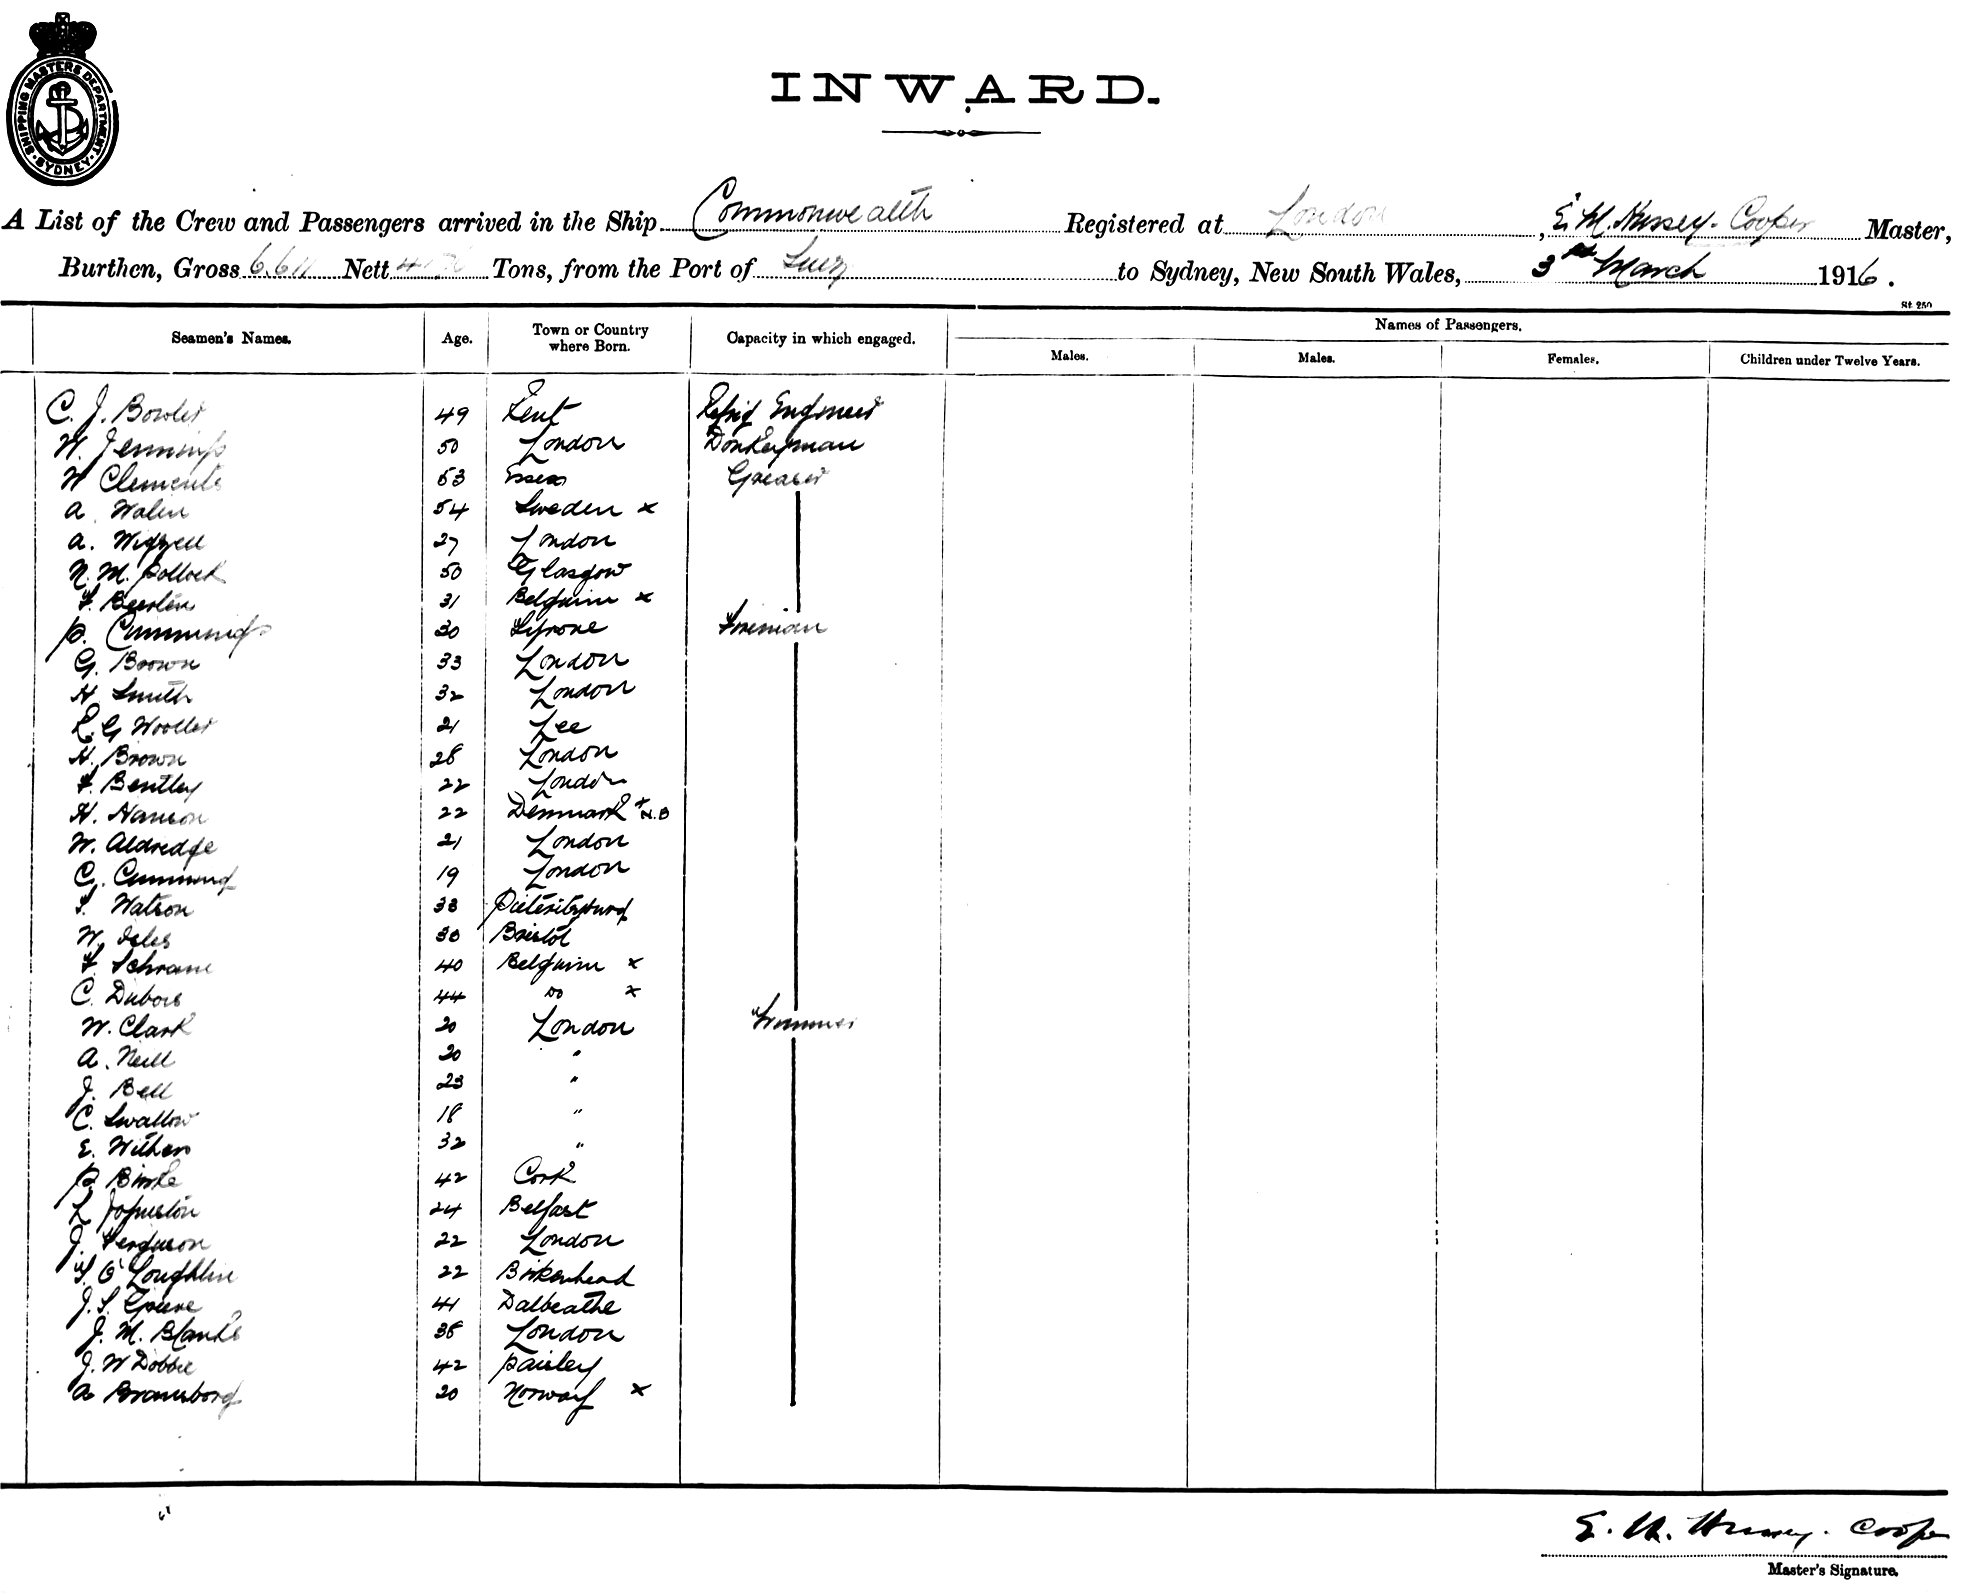 SHIPPING MASTERS DEPARTMENT · SYDNEY ·
INWARD.
A List of the Crew and Passengers arrived in the Ship Commonwealth Registered at London, E. M. Hussey-Cooper Master,
Burthen, Gross 6611 Nett Tons, from the Port of Suez to Sydney, New South Wales, 3rd March 1916.
St. 250
Seamen's Names. Age. Town or Country where Born. Capacity in which engaged. Names of Passengers.
Males. Males. Females. Children under Twelve Years.
C. J. Bowler 49 Kent Refrig Engineer
W. Jennings 50 London Donkeyman
W Clements 53 Essex Greaser
A. Walin 54 Sweden x
A. Wigzell 27 London
N. M. Pollock 50 Glasgow
F. Beerten 31 Belguim x
P. Cummings 30 Tyrone Fireman
G. Brown 33 London
H Smith 32 London
L. G Wooller 21 Lee
H. Brown 28 London
F. Bentley 22 London
H. Hanson 22 Denmark x N.B
W. Aldredge 21 London
C. Cumming 19 London
S. Watson 33
W. Isles 30 Bristol
F. Schram 40 Belguim x
C. Dubois 44 Do x
W. Clark 20 London Trimmer
A. Neill 20 "
J. Bell 23 "
C. Swallow 18 "
E. Withers 32 "
P. Birke 42 Cork
L Johnston 24 Belfast
J. Ferguson 22 London
S. O'Loughlin 22 Birkenhead
J. S. Grieve 41 Dalbeathe
J. M. Blanks 38 London
J. W Dobbie 42 Paisley
A Bramsborg 20 Norway x
E. M. Hussey-Cooper
Master's Signature.